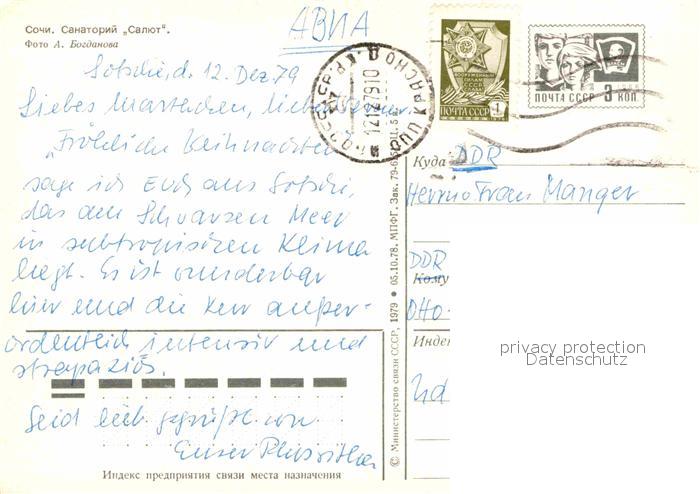 Сочи. Санаторий „Салют“.
Фото А. Богданова
АВИА
Sotschi, d. 12. Dez. 79
Liebes Martchen, lieber
„Fröhliche Weihnachten“
sage ich Euch aus Sotschi,
das am Schwarzen Meer
in subtropischen Klima
liegt. Es ist wunderbar
hier und die Kur außer-
ordentlich intensiv und
strapaziös.
Seid lieb gegrüßt von
Eurer
Индекс предприятия связи места назначения
© Министерство связи СССР, 1979 • 05.10.78. МПФГ. Зак. 79-6
ВООРУЖЕННЫМ
СИЛАМ
СССР
СЛАВА
ПОЧТА СССР 1
ПОЧТА СССР 3 КОП
12127910
Куда DDR
Herrn Frau Manger
DDR
Кому
Otto-
Индек
privacy protection
Datenschutz